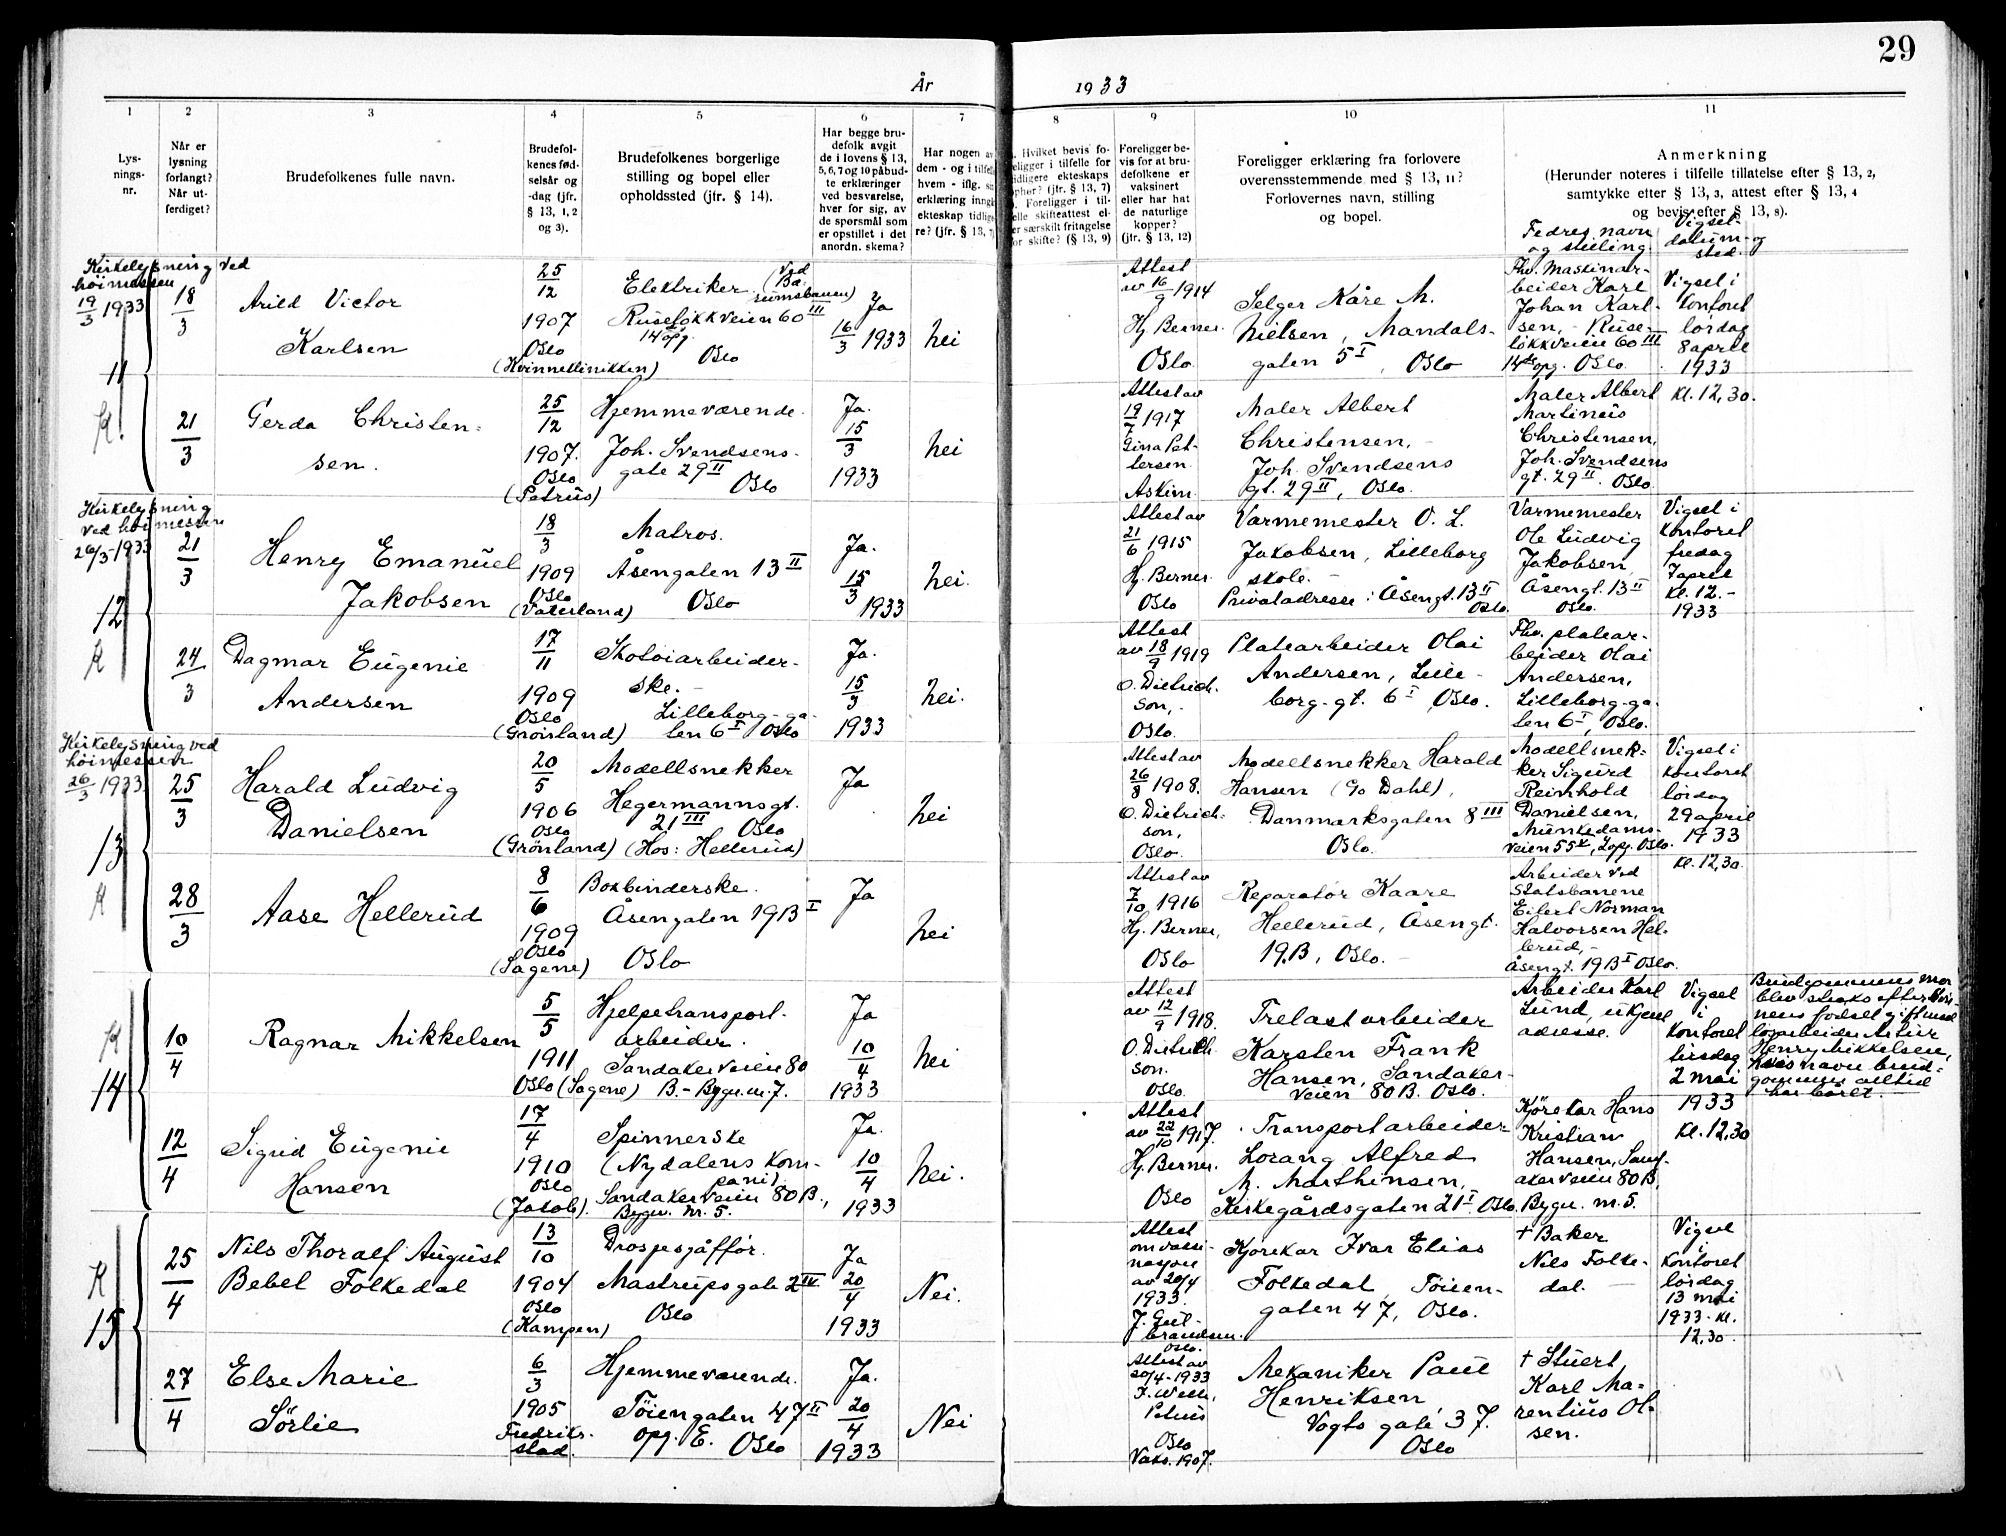 29
År 1933
1
2
3
4
5
6
7
8
9
10
11
Lys-
nings-
nr.
Når er
lysning
forlangt?
Når ut-
ferdiget?
Brudefolkenes fulle navn.
Brudefol-
kenes fød-
selsår og
-dag (jfr.
§ 13, 1, 2
og 3).
Brudefolkenes borgerlige
stilling og bopel eller
opholdssted (jfr. § 14).
Har begge bru-
defolk avgit
de i lovens § 13,
5, 6, 7 og 10 påbud-
te erklæringer
ved besvarelse,
hver for sig, av
de spørsmål som
er opstillet i det
anordn. skema?
Har nogen av
dem - og i tilfelle
hvem - iflg. sin
erklæring inngk
ekteskap tidlige
re? (jfr. § 13, 7
. Hvilket bevis fo-
religger i tilfelle for
idligere ekteskaps
ophør? (jfr. § 13, 7)
. Foreligger i til-
elle skifteattest el-
er særskilt fritagelse
or skifte? (§ 13, 9)
Foreligger be-
vis for at bru-
defolkene er
vaksinert
eller har hat
de naturlige
kopper?
(jfr. § 13, 12)
Foreligger erklæring fra forlovere
overensstemmende med § 13, 11?
Forlovernes navn, stilling
og bopel.
Anmerkning
(Herunder noteres i tilfelle tillatelse efter § 13, 2,
samtykke efter § 13, 3, attest efter § 13, 4
og bevis efter § 13, 8).
Fedres navn
og stilling.
Vigsel-
datum og
sted.
Kirkelysning ved
höimessen
19/3 1933
11
K.
18/3
Arild Victor
Karlsen
25/12
1907
Oslo
(Kvinneklinikken)
Elektriker (Ved
Bæ-
rumsbanen)
Ruseløkkveien 60 III
14 opg.
Oslo
Ja
16/3 1933
Nei
Attest
av 16/9 1914
Hj. Berner
Oslo
Selger Kåre M.
Nielsen, Mandals-
gaten 5 I, Oslo
Fhv. Maskinar-
beider Karl
Johan Karl-
sen, - Ruse-
løkkveien 60 III
14de opg. Oslo.
Vigsel i
kontoret
lørdag
8 april
1933
Kl. 12,30.
21/3
Gerda Christen-
sen.
25/12
1907.
Oslo
(Petrus)
Hjemmeværende.
Joh. Svendsens-
gate 29 II
Oslo
Ja.
15/3
1933
Nei
Attest av
19/7 1917
Gina Pet-
tersen
Askim
Maler Albert
Christensen,
Joh. Svendsens
gt. 29 II, Oslo.
Maler Albert
Martinius
Christensen,
Joh. Svendsens
gt. 29 II. Oslo.
Kirkelysning
ved höimessen
26/3-1933
12
K
21/3
Henry Emanuel
Jakobsen
18/3
1909
Oslo
(Vaterland)
Matros.
Åsengaten 13 II
Oslo
Ja.
15/3
1933
Nei.
Attest av
21/6 1915
Hj. Berner
Oslo
Varmemester O. L.
Jakobsen, Lilleborg
skole. -
Privatadresse: Åsengt. 13 II
Oslo.
Varmemester
Ole Ludvig
Jakobsen,
Åsengt. 13 II
Oslo.
Vigsel i
kontoret
fredag
7 april
Kl. 12.-
1933
24/3
Dagmar Eugenie
Andersen
17/11
1909
Oslo
(Grönland)
Skotøiarbeider-
ske. -
Lilleborg-ga-
ten 6 I Oslo
Ja.
15/3
1933
Nei.
Attest
av 18/9 1919
O. Dietrich-
son,
Oslo.
Platearbeider Olai
Andersen, Lille-
borg-gt. 6 I, Oslo.
Fhv. platear-
beider Olai
Andersen,
Lilleborg-ga-
ten 6 I, Oslo.
Kirkelysning ved
höimessen
26/3 1933.
13
K
25/3
Harald Ludvig
Danielsen
20/5
1906
Oslo
(Grönland)
Modellsnekker
Hegermannsgt.
21 III Oslo
(Hos: Hellerud)
Ja
Nei
Attest av
26/8 1908.
O. Dietrich-
son,
Oslo.
Modellsnekker Harald
Hansen (c/o Dahl),
Danmarksgaten 8 III
Oslo.
Modellsnek-
ker Sigurd
Reinhold
Danielsen,
Munkedams-
veien 55 V, 2 opg. Oslo.
Vigsel i
kontoret
lørdag
29 april
1933
Kl. 12,30.
28/3
Aase Hellerud
8/6
1909
Oslo
(Sagene)
Bokbinderske.
Åsengaten 19B I
Oslo
Ja
Nei
Attest av
7/10 1916
Hj. Berner,
Oslo
Reparatör Kaare
Hellerud, Åsengt.
19.B, Oslo. -
Arbeider ved
Statsbanene
Eilert Norman
Halvorsen Hel-
lerud, -
Åsengt. 19B I Oslo.
K
14
10/4
Ragnar Mikkelsen
5/5
1911
Oslo (Sagene)
Hjelpetransport-
arbeider.
Sandakerveien 80
B.- Bygn. nr. 7.
Ja
10/4
1933
Nei
Attest
av 12/9 1918.
O. Dietrich-
son.
Oslo.
Trelastarbeider
Karsten Frank
Hansen, Sandaker-
veien 80 B. Oslo.
Arbeider Karl
Lund, ukjent
adresse.
Vigsel
i
kontoret
tirsdag
2 mai
1933
Kl. 12,30
Brudgommens mor
blev straks efter
nens fødsel gift med
løsarbeider Artur
Henry Mikkelsen,
hvis navn brud-
gommen alltid
har båret.
12/4
Sigrid Eugenie
Hansen
17/4
1910
Oslo
(Jakob).
Spinnerske
(Nydalens Kom-
pani).
Sandakerveien 80 B.,
Bygn. Nr. 5.
Ja.
10/4
1933
Nei.
Attest
av 22/10 1917.
Hj. Berner.
Oslo
Transportarbeider
Lorang Alfred
M. Marthinsen,
Kirkegårdsgaten 21 I Oslo.
Kjörekar Hans
Kristian
Hansen, Sand-
akerveien 80 B,
Bygn. nr. 5.
K
15
25/4
Nils Thoralf August
Bebel Folkedal
13/10
1904
Oslo
(Kampen)
Drosjesjåffør.
Mastrupsgate 2 III
Oslo
Ja
20/4
1933
Nei.
Attest
om vaksi-
nasjon
av 20/4
1933.
J. Gul-
brandsen.
Oslo.
Kjørekar Ivar Elias
Folkedal, Töien-
gaten 47, Oslo.
† Baker
Nils Folke-
dal. -
Vigsel
i
Kontoret
lørdag
13 mai
1933. Kl.
12,30.
27/4
Else Marie
Sörlie
6/3
1905
Fredrik-
stad.
Hjemmeværende.
Töiengaten 47 II
opg. E. Oslo
Ja.
20/4
1933
Nei
Attest av
20/4-1933
Petrus
Oslo
Vaks. 1907.
Mekaniker Paul
Henriksen,
Vogts gate 37.
Oslo
† Stuert
Karl Ma-
rentius Ol-
sen.